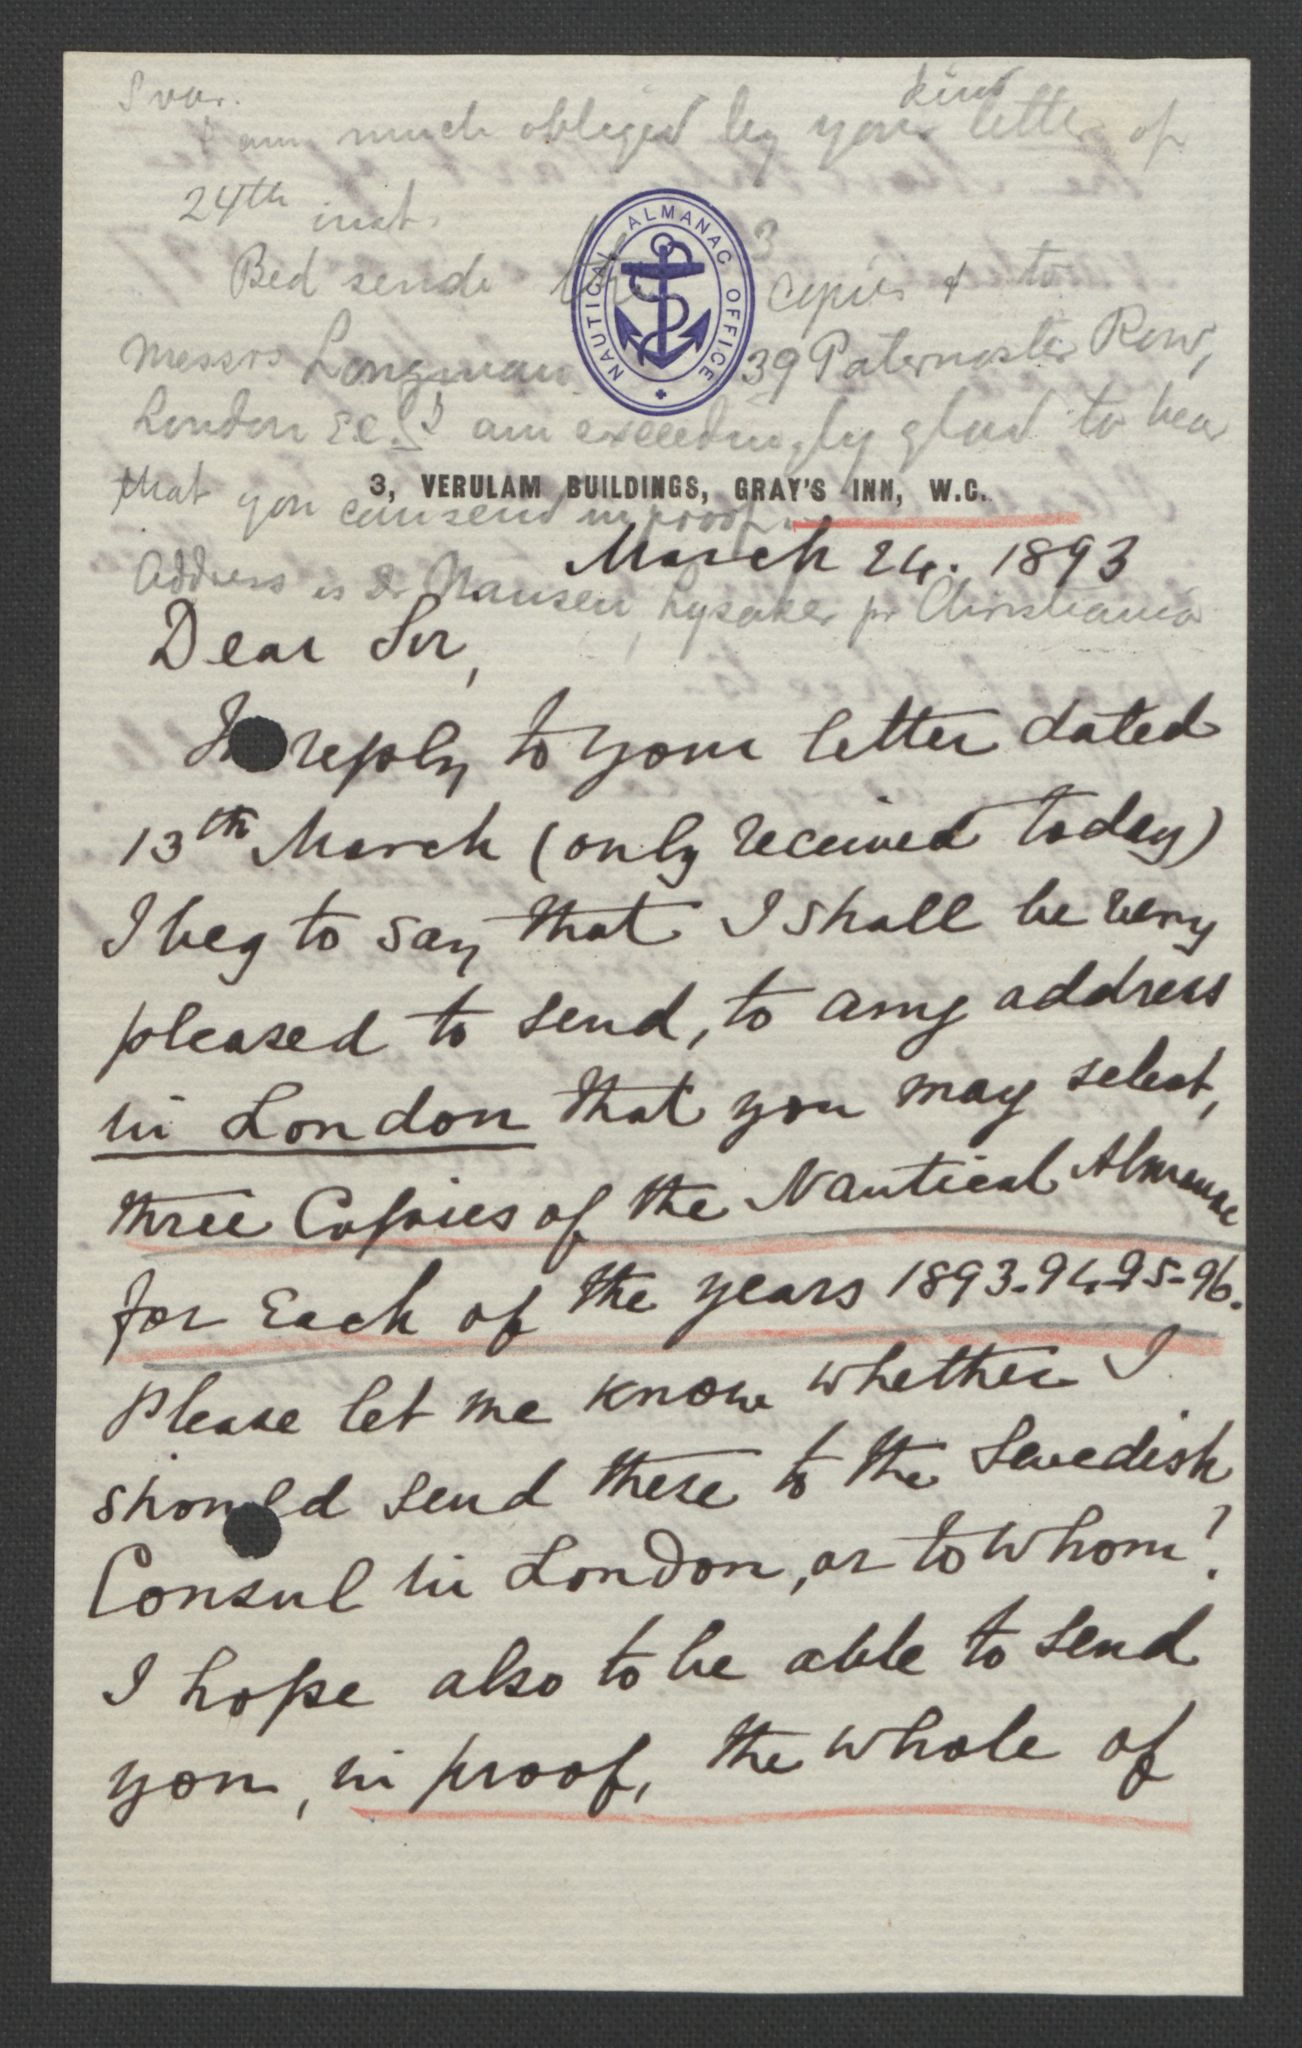 Svar.
I am much obliged by your kind letter of
24th inst.
Bed sende 3 copies to
Messrs Longman 39 Paternoster Row,
London E.C. I am exceedingly glad to hear
that you can send in proof.
Address is Dr Nansen, Lysaker pr Christiania
NAUTICAL ALMANAC OFFICE
3, VERULAM BUILDINGS, GRAY'S INN, W.C.
March 24. 1893
Dear Sir,
In reply to your letter dated
13th March (only received today)
I beg to say that I shall be very
pleased to send, to any address
in London that you may select,
three Copies of the Nautical Almanac
for Each of the years 1893-94-95-96.
Please let me know whether I
should send these to the Swedish
Consul in London, or to whom?
I hope also to be able to send
you, in proof, the whole of